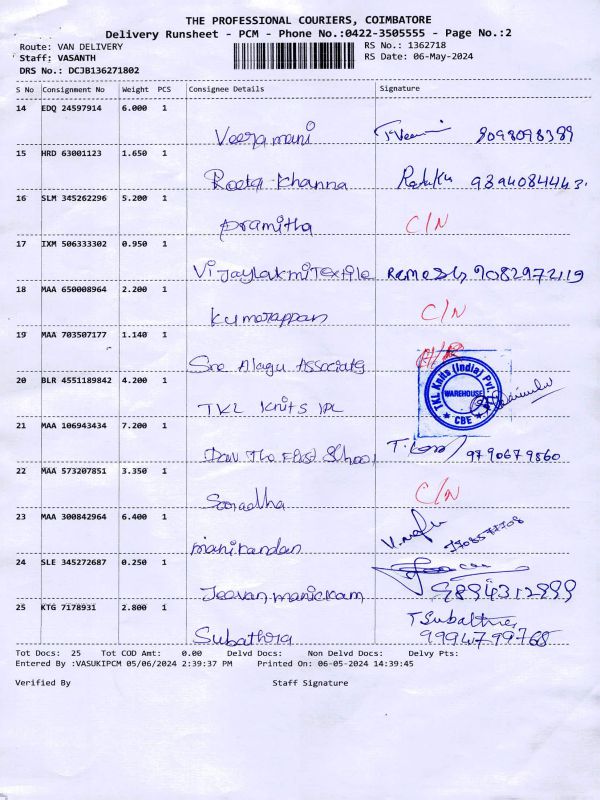 THE PROFESSIONAL COURIERS, COIMBATORE
Delivery Runsheet - PCM - Phone No.:0422-3505555 - Page No.:2
Route: VAN DELIVERY RS No.: 1362718
Staff: VASANTH RS Date: 06-May-2024
DRS No.: DCJB136271802
S No Consignment No Weight PCS Consignee Details Signature
14 EDQ 24597914 6.000 1
Veera mani 9098098389
15 HRD 63001123 1.650 1
Reeta Khanna 9394084443.
16 SLM 345262296 5.200 1
Pramitha C/N
17 IXM 506333302 0.950 1
Vijaylakmi Textile Remesh, 9082972119
18 MAA 650008964 2.200 1
Kumarappan C/N
19 MAA 703507177 1.140 1
Sree Alagu Associates
20 BLR 4551189842 4.200 1
TKL Knits (India) Pvt WAREHOUSE ★ CBE ★
TKL Knits IPL
21 MAA 106943434 7.200 1
The First School 9790679860
22 MAA 573207851 3.350 1
C/N
23 MAA 300842964 6.400 1
Manikandan
24 SLE 345272687 0.250 1
Jeevan manickam 9894312899
25 KTG 7178931 2.800 1
Subathira 9994799768
Tot Docs: 25 Tot COD Amt: 0.00 Delvd Docs: Non Delvd Docs: Delvy Pts:
Entered By :VASUKIPCM 05/06/2024 2:39:37 PM Printed On: 06-05-2024 14:39:45
Verified By Staff Signature